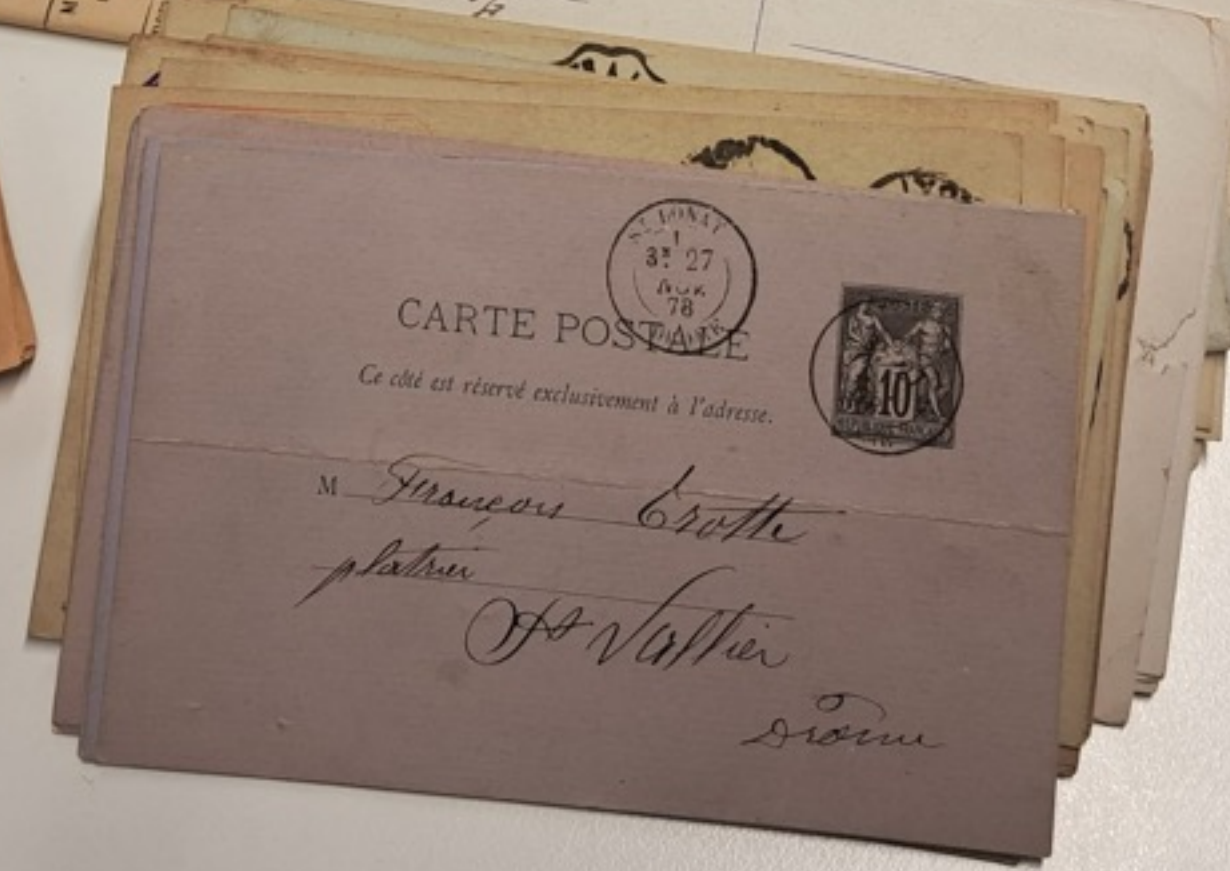 ST DONAT
1
3E 27
78
DROME
CARTE POSTALE
Ce côté est réservé exclusivement à l'adresse.
10
M François Trotte
platrier
St Vallier
Drôme